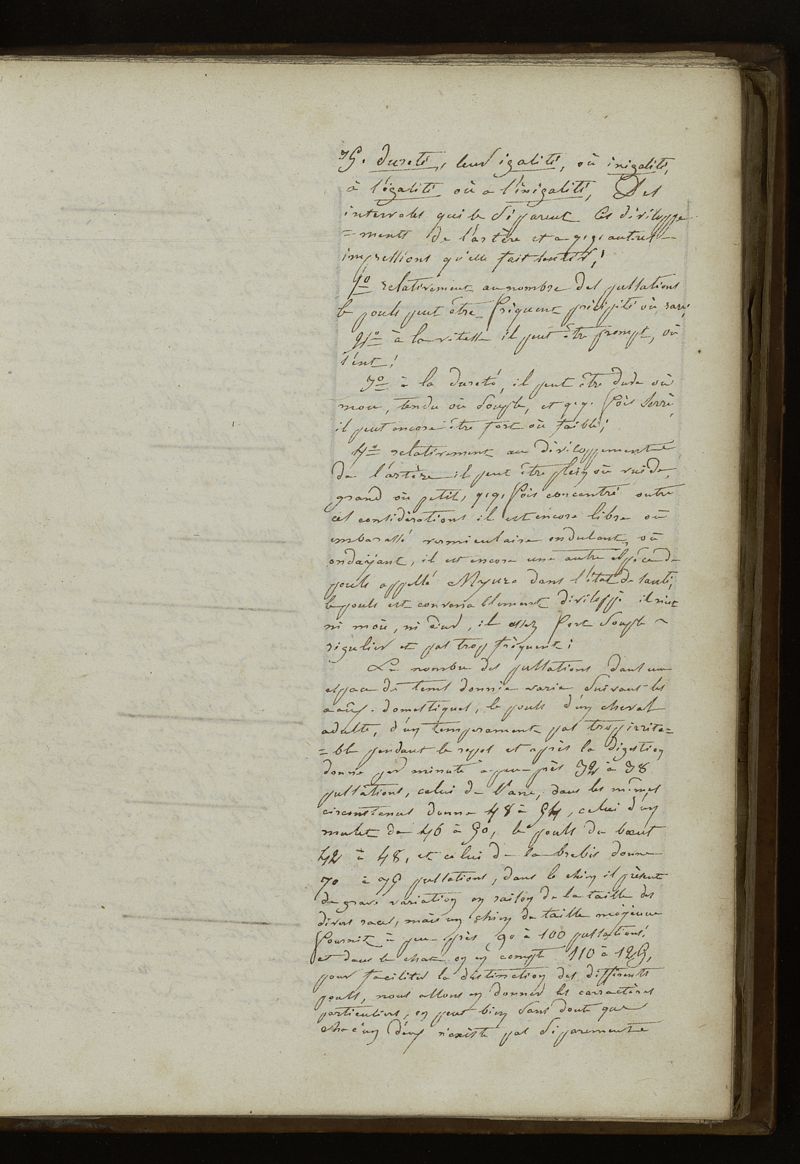 75. dureté, leur igalité, où inigalité,
à l'égalité où a l'inigalité, Des
intervales qui le Séparent Ces dévéloppe
= ments de l'artère et a q.q. autres
impressions qu'elle fait sentir;
1º relativement au nombre des pulsations
le pouls peut être fréquent précipité où rare,
2º à la vitesse il peut être prompt, où
lént;
3º à la dureté, il peut être dure où
mou, tendu où Souple, et q.q. fois Serré,
il peut encore être fort où faible;
4º relativement au dévéloppement
de l'artère il peut être plein où vuide,
grand où petit, q.q. fois concentré outre
cés considérations il est éncore libre où
embarassé vermiculaire ondulant, où
ondoyant, il est encore une autre éspéce de
pouls appellé Myure dans l'état de santé,
le pouls est convenablement dévélopé il n'ést
ni moû, ni dur, il assez fort Souple
régulier et pas trop fréquent;
Le nombre des pulsations dans un
espace de tems donnée varie Suivant les
a aux. domestiques, le pouls d'un cheval
adulte, d'un temperament pas trop irrita=
= ble pendant le repos et après la digestion
donne par minute a peu près 32 à 38
pulsations, celui de l'ane, dans les mêmes
circonstences donne 48 à 54, celui d'un
mulet de 46 à 50, le pouls du bœuf
42 à 48, et celui de la brebis donne
70 à 75 pulsations, dans le chien il présente
de grave variation en raison de la taille des
divers races, mais un chien de taille moyenne
fournit à peu près 90 à 100 pulsations,
et dans le chat on en compte 110 à 125,
pour faciliter la distinction des différents
pouls, nous allons en donner les carractères
particuliers, on peut bien Sans doute que
chacun d'eux n'existe pas Séparement